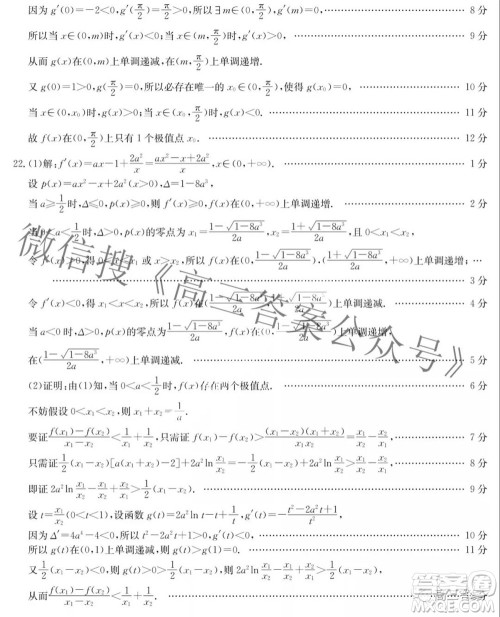 因为 g′(0)=-2<0,g′(π/2)=π/2>0,所以∃m∈(0,π/2),g′(m)=0. …… 8分
所以当 x∈(0,m)时,g′(x)<0;当 x∈(m,π/2)时,g′(x)>0, …… 9分
从而 g(x)在(0,m)上单调递减,在(m,π/2)上单调递增.
又 g(0)=1>0,g(π/2)<0,所以必存在唯一的 x₀∈(0,π/2),使得 g(x₀)=0, …… 10分
当 x∈(0,x₀)时,g(x)>0;当 x∈(x₀,π/2)时,g(x)<0. …… 11分
故 f(x)在(0,π/2)上只有1个极值点 x₀. …… 12分
22.(1)解:f′(x)=ax-1+2a²/x=(ax²-x+2a²)/x,x∈(0,+∞). …… 1分
设 p(x)=ax²-x+2a²(x>0),Δ=1-8a³,
当 a≥1/2时,Δ≤0,p(x)≥0,则 f′(x)≥0,f(x)在(0,+∞)上单调递增. …… 2分
当 0<a<1/2时,Δ>0,p(x)的零点为(1-√(1-8a³))/2a,(1+√(1-8a³))/2a,且 0<x₁<x₂,
令 f′(x)>0,得 0<x<x₁或 x>x₂,所以 f(x)在(0,(1-√(1-8a³))/2a),((1+√(1-8a³))/2a,+∞)上单调递增; …… 3分
令 f′(x)<0,得 x₁<x<x₂, 上单调递减. …… 4分
当 a<0时,Δ>0,p(x)的零点为(1-√(1-8a³))/2a,f(x)在(0,(1-√(1-8a³))/2a)上单调递增,
在((1-√(1-8a³))/2a,+∞)上单调递减. …… 5分
(2)证明:由(1)知,当 0<a<1/2时,f(x)存在两个极值点. …… 6分
不妨假设 0<x₁<x₂,则 x₁+x₂=1/a.
要证(f(x₁)-f(x₂))/(x₁-x₂)<1/x₁+1/x₂,只需证 f(x₁)-f(x₂)>(x₁-x₂)(x₁+x₂)/x₁x₂=x₁/x₂-x₂/x₁, …… 7分
只需证1/2(x₁-x₂)[a(x₁+x₂)-2]+2a²ln x₁/x₂=-1/2(x₁-x₂)+2a²ln x₁/x₂>x₁/x₂-x₂/x₁, …… 8分
即证 2a²ln x₁/x₂-x₁/x₂+x₂/x₁>1/2(x₁-x₂). …… 9分
设 t=x₁/x₂(0<t<1),设函数 g(t)=2a²ln t-t+1/t,g′(t)=-(t²-2a²t+1)/t², …… 10分
因为 Δ′=4a⁴-4<0,所以 t²-2a²t+1>0,g′(t)<0,
所以 g(t)在(0,1)上单调递减,则 g(t)>g(1)=0. …… 11分
又1/2(x₁-x₂)<0,则 g(t)>0>1/2(x₁-x₂),则 2a²ln x₁/x₂-x₁/x₂+x₂/x₁>1/2(x₁-x₂),
从而(f(x₁)-f(x₂))/(x₁-x₂)<1/x₁+1/x₂.
微信搜《高三答案公众号》
答案圈
MXQE.COM